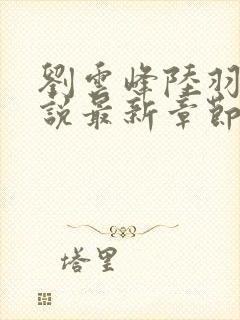 劉雲峰陸羽
說最新章節
塔里